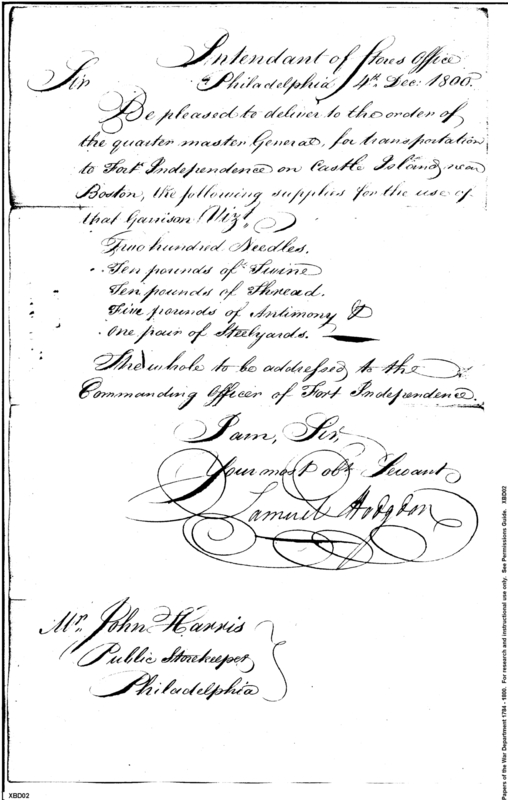 Intendant of Stores Office
Philadelphia 4th. Dec: 1800.
Sir
Be pleased to deliver to the order of
the quarter master General, for transportation
to Fort Independence on Castle Island, near
Boston, the following supplies for the use of
that Garrison Vizt
Two hundred Needles.
Ten pounds of Twine
Ten pounds of Thread.
Five pounds of Antimony &
One pair of Steelyards.
The whole to be addressed to the
Commanding Officer of Fort Independence.
I am, Sir,
Your most obt Servant
Samuel Hodgdon
Mr. John Harris
Public Storekeeper
Philadelphia
Papers of the War Department 1784 - 1800. For research and instructional use only. See Permissions Guide. XBD02
XBD02